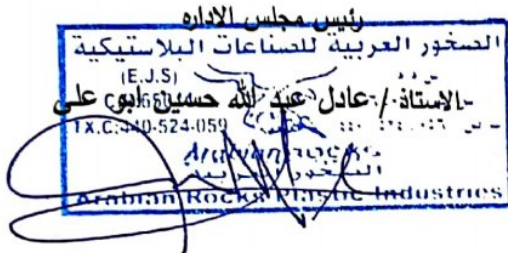 رئيس مجلس الاداره
الصخور العربية للصناعات البلاستيكية
(E.J.S)
الاستاذ / عادل عبد الله حسين ابو على
TX.C:440-524-059
Arabian Rocks
الصخور العربية
Arabian Rocks Plastic Industries